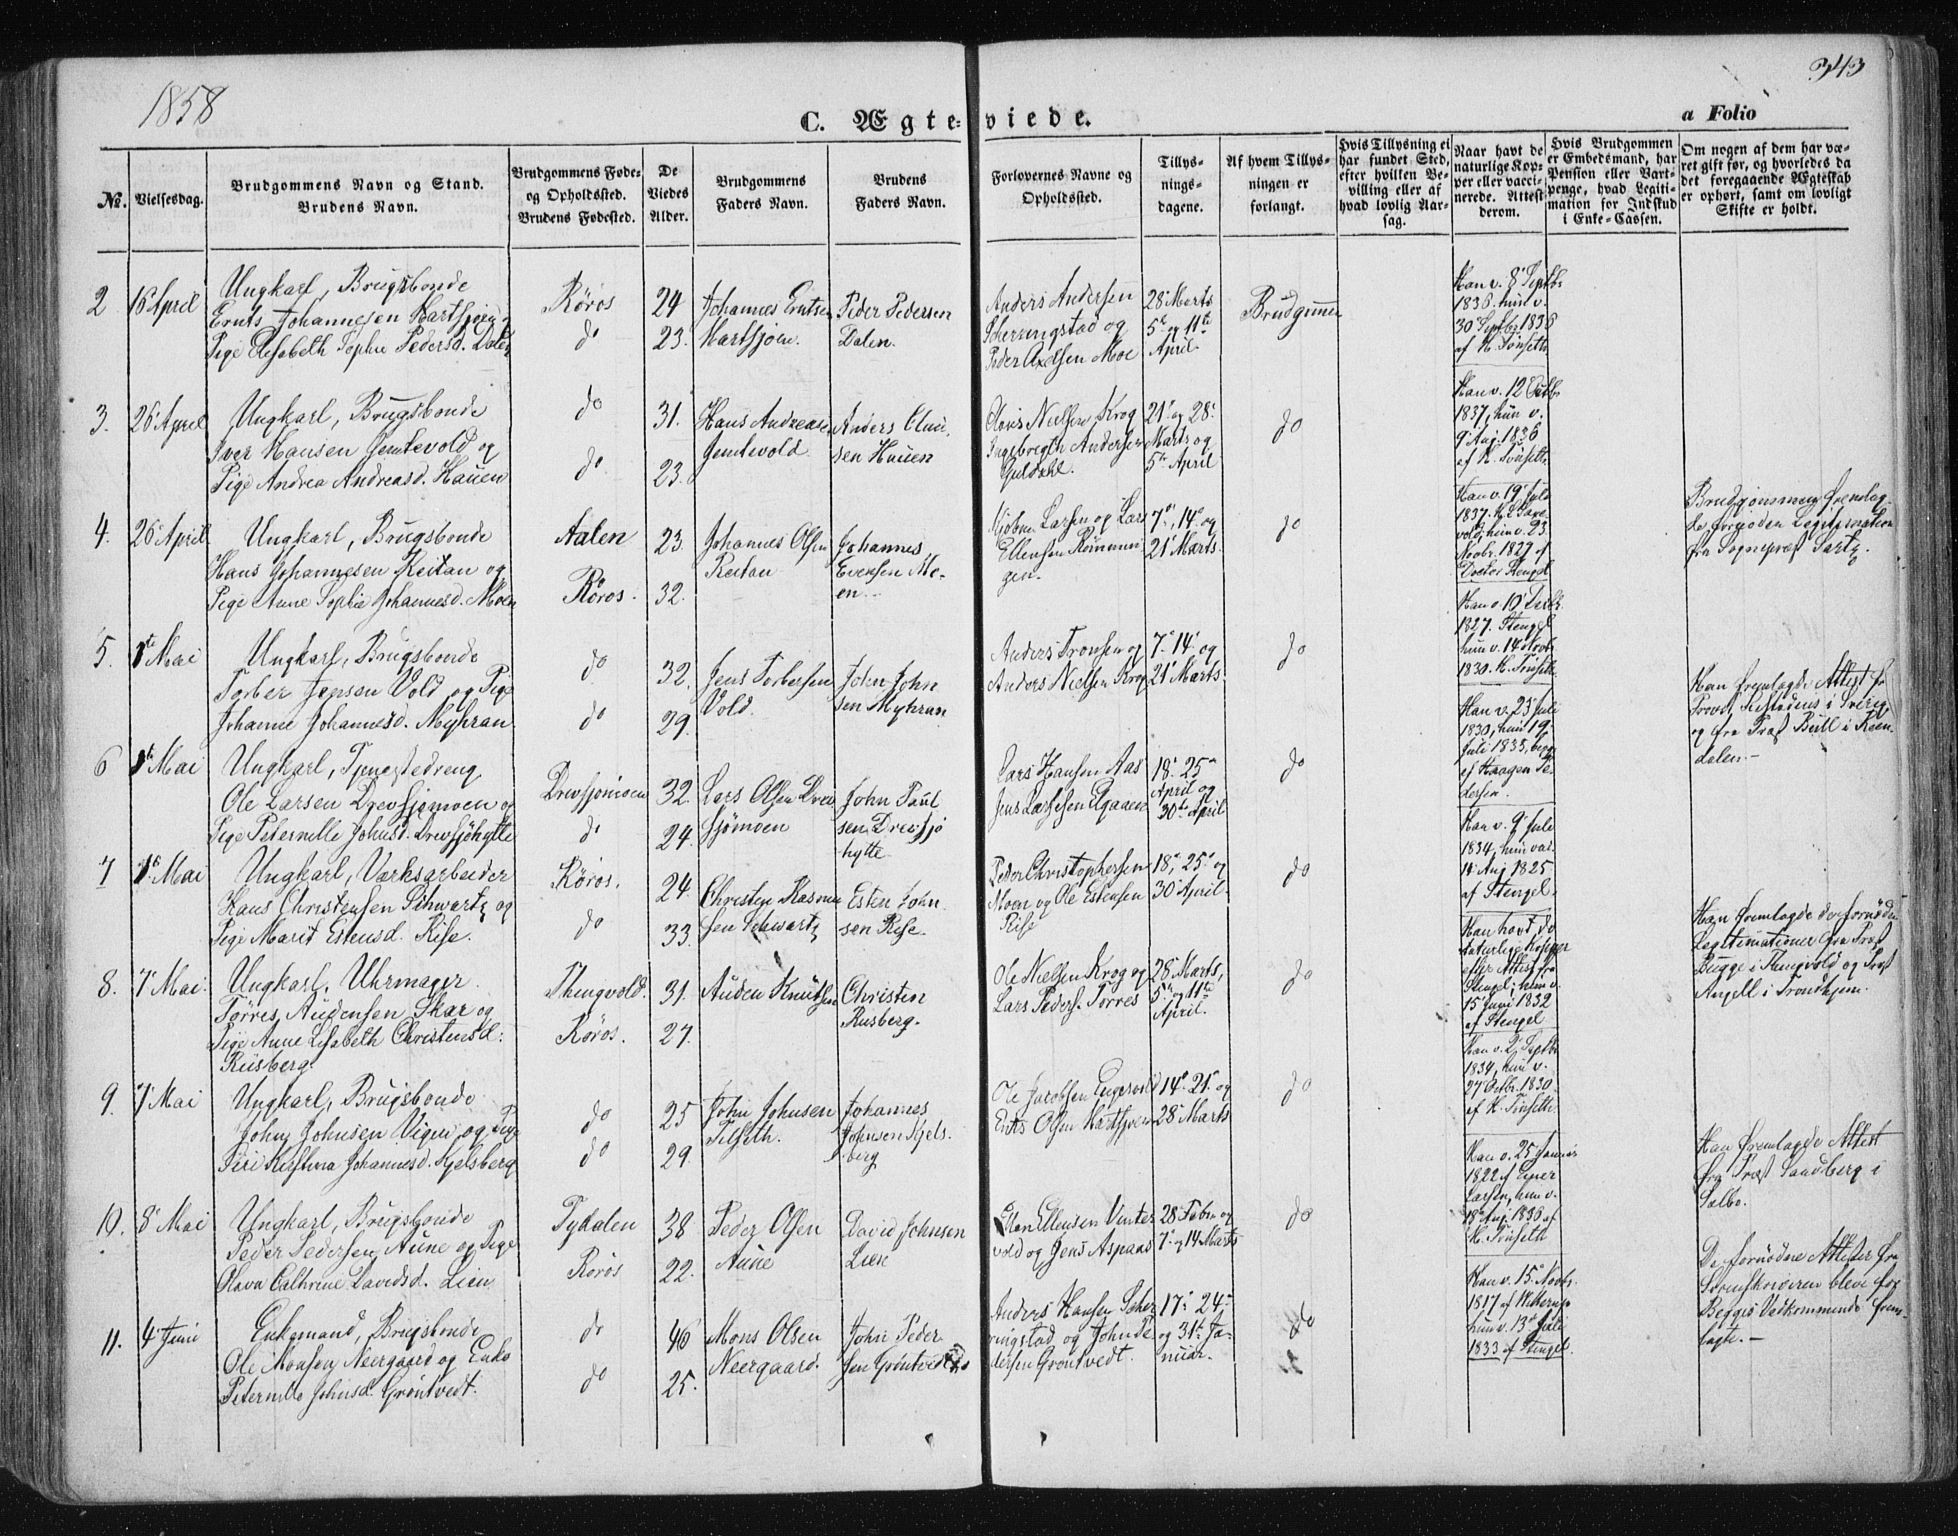 1858
343
C. Ægteviede.
a Folio
No.
Vielsesdag.
Brudgommens Navn og Stand.
Brudens Navn.
Brudgommens Føde-
og Opholdssted.
Brudens Fødested.
De
Viedes
Alder.
Brudgommens
Faders Navn.
Brudens
Faders Navn.
Forlovernes Navne og
Opholdssted.
Tillys-
nings-
dagene.
Af hvem Tillys-
ningen er
forlangt.
Hvis Tillysning ei
har fundet Sted,
efter hvilken Be-
villing eller af
hvad lovlig Aar-
sag.
Naar havt de
naturlige Kop-
per eller vacci-
nerede. Attest
derom.
Hvis Brudgommen
er Embedsmand, har
Pension eller Vart-
penge, hvad Legiti-
mation for Indskud
i Enke-Cassen.
Om nogen af dem har væ-
ret gift før, og hvorledes da
det foregaaende Ægteskab
er ophørt, samt om lovligt
Skifte er holdt.
2
16 April
Ungkarl, Brugsbonde
Ernts Johannesen Hartsjøen
Pige Elisabeth Sophie Pedersd. Dalen
Røros
do
24
23.
Johannes Erntsen
Hartsjøen.
Peder Pedersen
Dalen.
Anders Andersen
Scherringstad og
Peder Axelsen Moe
28 Marts
5te og 11te
April.
Brudgummen
Han v. 8 Septbr.
1836. hun v.
30 Septbr. 1836
af H. Tønseth
3.
26 April
Ungkarl, Brugsbonde
Iver Hansen Jemtevold og
Pige Andrea Andreasd. Hauen
do
do
31.
23.
Hans Andreasen
Jemtevold.
Anders
sen Hauen
Nielsen Krog
Ingebregth Andersen
Guldahl.
21 og 28
Marts og
5te April
do
Han v. 12 Octbr.
1837, hun v.
9 Aug. 1836
af H. Tønseth
4.
26 April
Ungkarl, Brugsbonde
Hans Johannesen Reitan og
Pige Anne Sophie Johannesd. Moen
Aalen
Røros.
23.
32.
Johannes Olsen
Reitan
Johannes
Evensen Mo-
en.
Larsen og Lars
Ellensen Rønnin
gen.
7, 14 og
21 Marts.
do
Han v. 19 Juli
1837.
hun v. 23
Novbr. 1829 af
Doctor Stengel
Brudgommen fremlag-
de fornøden Legitimation
fra Sognepræst
5.
1te Mai
Ungkarl, Brugsbonde
Torber Jensen Vold og Pige
Johanne Johannesd. Myhran.
do
do
32.
29.
Jens Torbersen
Vold.
John John
sen Myhran
Anders Tronsen og
Anders Nielsen Krog
7. 14. og
21 Marts.
do
Han v. 10
1827. Stengel
hun v. 14 Novbr.
1830. H. Tønseth.
6
1te Mai
Ungkarl, Tjenestedreng
Ole Larsen Drevsjømoen og
Pige Peternille Johnsd. Drevsjøhytte
Drevsjømoen
do
32.
24.
Lars Olsen Drev
sjømoen
John Paul
sen Drevsjø
hytte
Lars Hansen Aas
Jens Larsesen Elgaaen
18. 25
April og
30te April
do
Han v. 23 Juli
1830, hun 19
Juli 1835, begge
af Haagen Pe-
dersen.
Han fremlagde Attest fr
Provst i Sverig
og fra Præst Bull i Ren-
dalen.-
7
1te Mai
Ungkarl, Værksarbeider
Hans Christensen Schwartz og
Pige Marit Estensd. Rise.
Røros.
do
24.
33.
Christen Rasmu
sen Schwartz
Esten John
sen Rise.
Peder Christophersen
Moen og Ole Estensen
Rise
18, 25 og
30 April.
do
Han v. 9 Juli
1834, hun vac.
14 Aug. 1825
af Stengel.
8.
7 Mai.
Ungkarl, Uhrmager
Tørres Audensen Skar og
Pige Anne Lisabeth Christensd:
Rusberg.
Thingvold.
Røros.
31.
27.
Auden Knutsen
Christen
Rusberg.
Ole Nielsen Krog og
Lars Peders. Torres
28 Marts,
5te og 11te
April.
do
Han havt do
naturlige Kopper
efter Attest fra
Stengel, hun v.
15 Juni 1832
af Stengel
Han fremlagde de fornødne
Legitimationer fra Præst
Bugge i Thingvold og Præst
Angell i Trondhjem.
9.
7 Mai
Ungkarl, Brugsbonde
John Johnsen Vigen og Pige
Siri Kirstina Johannesd. Kjelsberg
do
do
25
29.
John Johnsen
Tilseth.
Johannes
Johnsen Kjels-
berg
Ole Jacobsen Engesvold
Ernts Olsen Hartsjøen
14. 21. og
28 Marts
do
Han v. 2 Septbr.
1834, hun v.
27 Octbr. 1830
af H. Tønseth.
10.
8 Mai
Ungkarl, Brugsbonde
Peder Pedersen Aune og Pige
Olava Cathrine Davidsd. Lien
Tydalen
Røros
38
22.
Peder Olsen
Aune
David Johnsen
Lien
Ellensen Vinter
vold og Jens Aspaas
28 Febr. og
7 og 14 Marts
do
Han v. 25 Januar
1822 af Ener
Larsen, hun v.
18 Aug. 1836 af
H. Tønseth
Han fremlagde Attest
fra Præst Sandberg i
Selbo.
11.
4 Juni
Enkemand, Brugsbonde
Ole Monsen Neergaard og Enke
Peternille Johnsd. Grøntvedt.
do
do
46
25.
Mons Olsen
Neergaard.
John Peder
sen Grøntvedt
Anders Hansen Scher
ringstad og John Pe
dersen Grøntvedt.
17. 24.
og 31te Ja-
nuar.
do
Han v. 15 Novbr.
1817 af
hun v. 13 Juli
1833 af Stengel.
De fornødne Attester fra
Sorenskriveren bleve for
Begges Vedkommende frem-
lagte.-